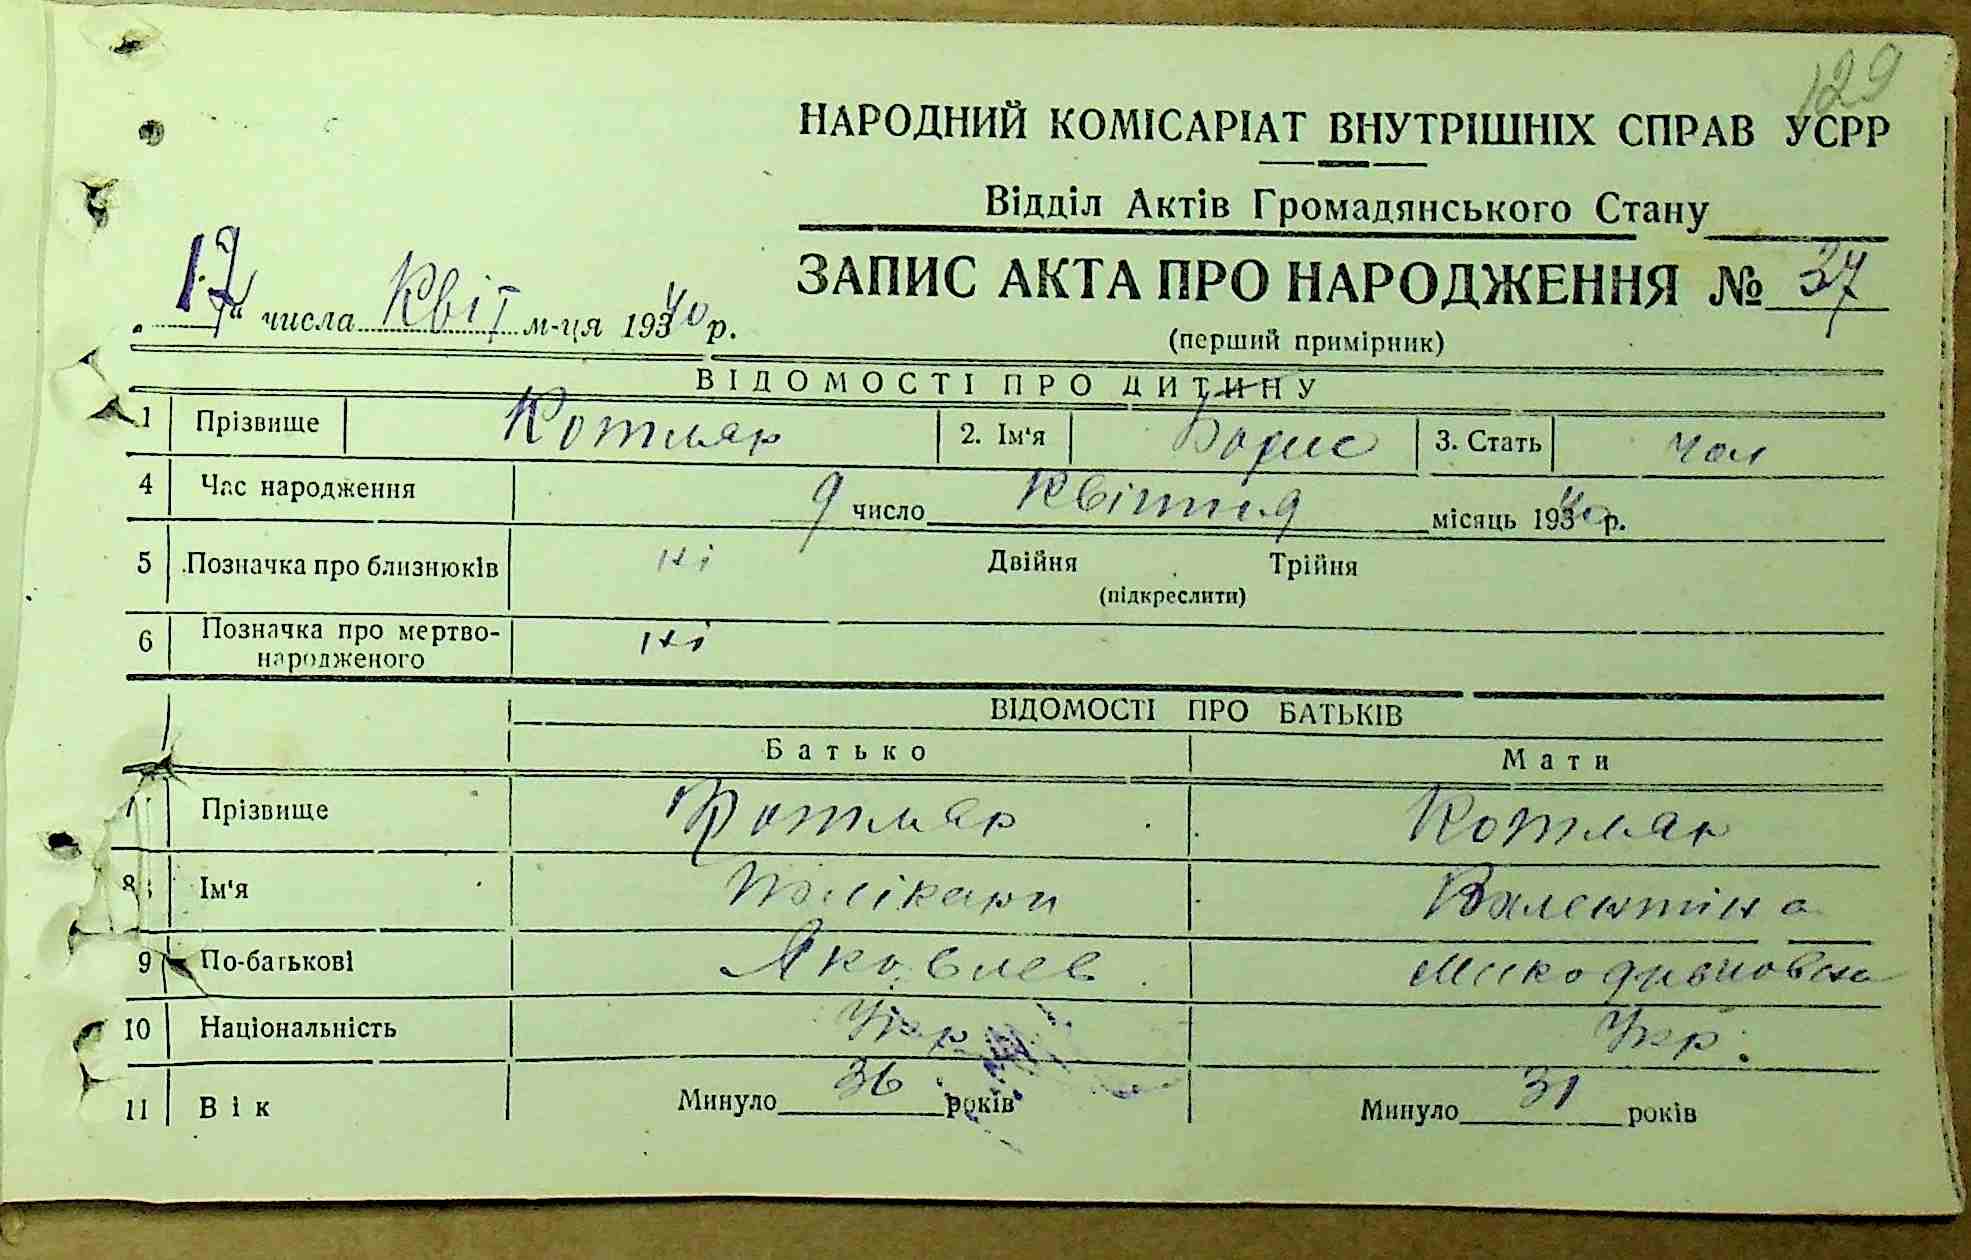 129
НАРОДНИЙ КОМІСАРІАТ ВНУТРІШНІХ СПРАВ УСРР
Відділ Актів Громадянського Стану
ЗАПИС АКТА ПРО НАРОДЖЕННЯ № 37
числа Квіт м-ця 1940 р.
(перший примірник)
ВІДОМОСТІ ПРО ДИТИНУ
1 Прізвище Котляр 2. Ім'я Борис 3. Стать чол
4 Час народження 9 число Квітня місяць 1940 р.
5 Позначка про близнюків ні Двійня Трійня
(підкреслити)
6 Позначка про мертво-
народженого ні
ВІДОМОСТІ ПРО БАТЬКІВ
Батько Мати
7 Прізвище Котляр Котляр
8 Ім'я Полікарп Валентина
9 По-батькові Яковлев
10 Національність Укр Укр.
11 Вік Минуло 36 років Минуло 31 років